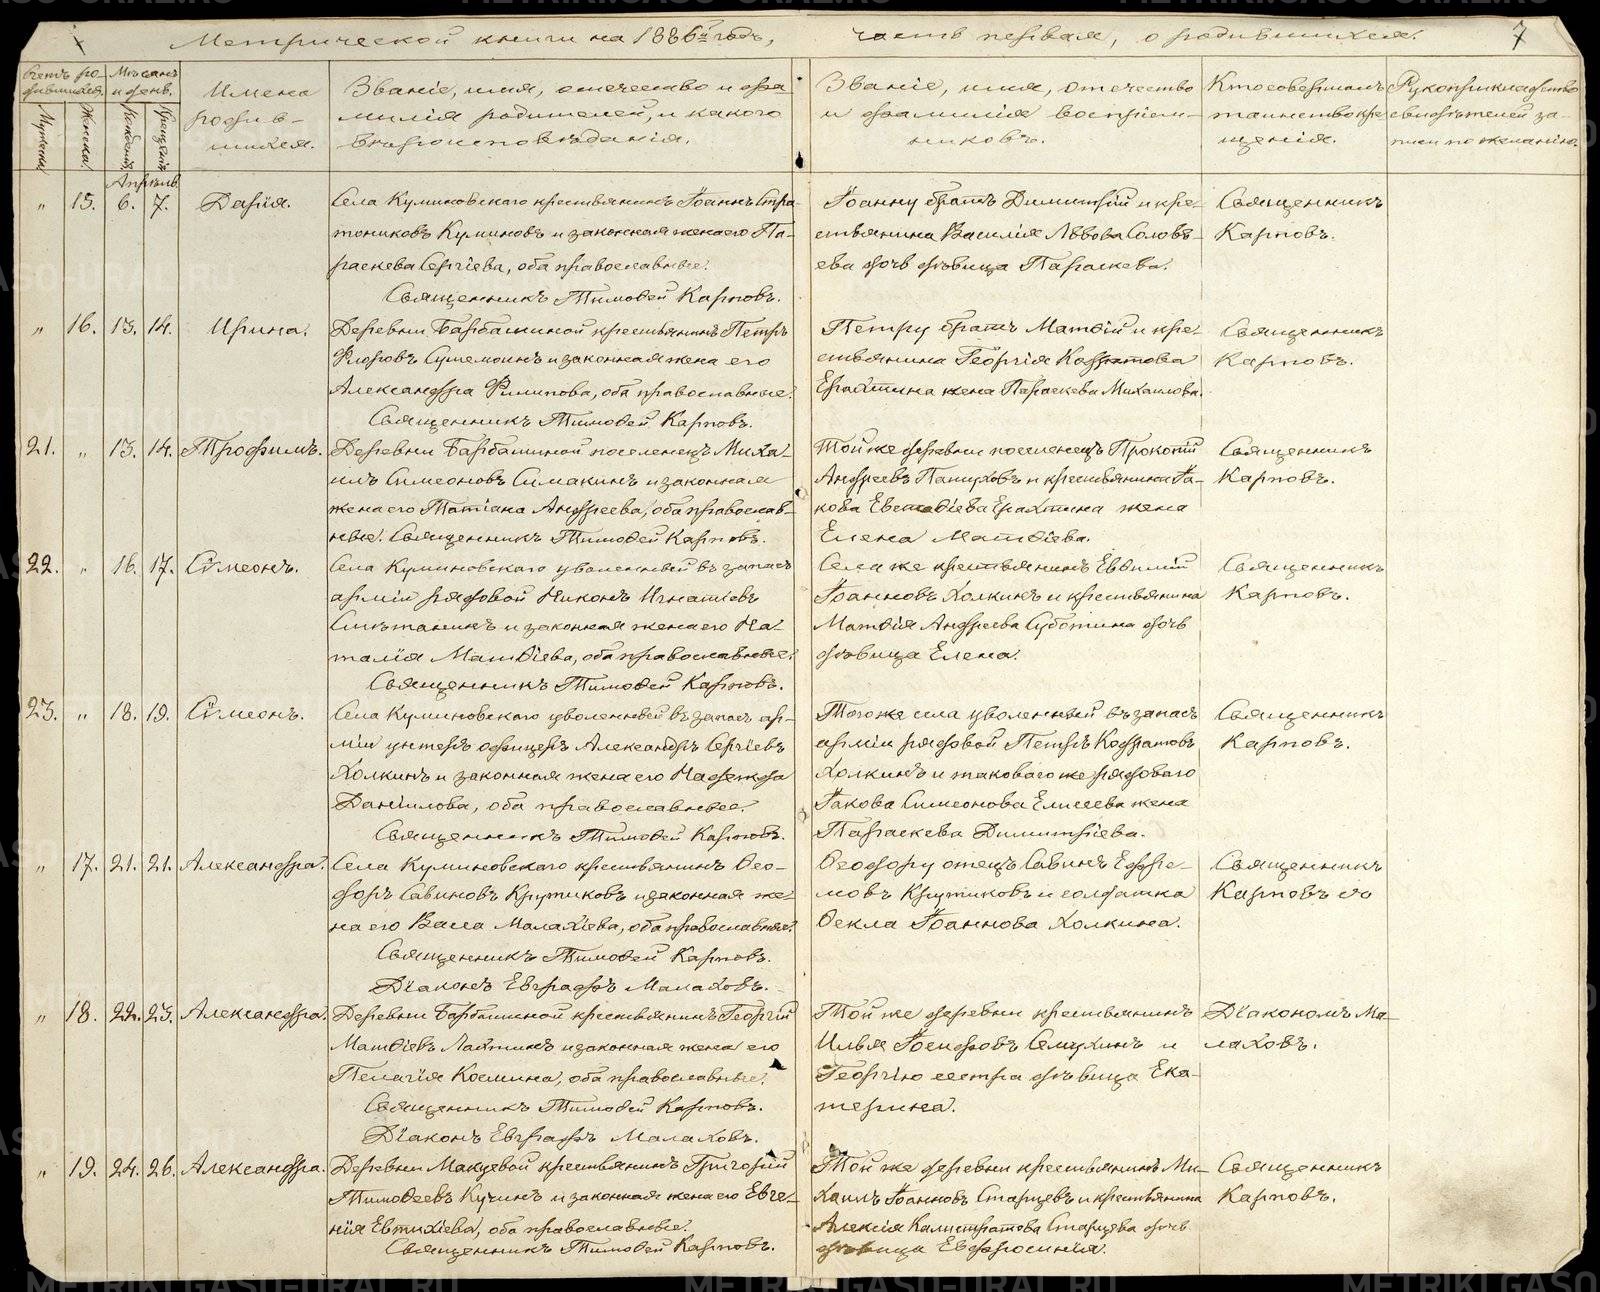 Метрической книги на 1886й годъ, часть первая, о родившихся. 7
Счетъ ро-
дившихся.
Мѣсяцъ
и день.
Мужеска.
Женска.
Рожденія.
Крещенія.
Имена
родив-
шихся.
Званіе, имя, отечество и фа
милія родителей, и какого
вѣроисповѣданія.
Званіе, имя, отечество
и фамилія воспріем-
никовъ.
Кто совершалъ
таинство кре
щенія.
Рукоприкладство
свидѣтелей за-
писи по желанію.
Апрѣль.
" 15. 6. 7. Дарія.
Села Куминовскаго крестьянинъ Іоаннъ Стра-
тониковъ Куминовъ и законная жена его Па-
раскева Сергіева, оба православные.
Священникъ Тимоѳей Карповъ.
Іоанну братъ Димитрій и кре-
стьянина Василія Львова Соловь-
ева дочь дѣвица Параскева.
Священникъ
Карповъ.
" 16. 13. 14. Ирина.
Деревни Барбашиной крестьянинъ Петръ
Флоровъ и законная жена его
Александра Филипова, оба православные.
Священникъ Тимоѳей Карповъ.
Петру братъ Матѳій и кре-
стьянина Георгія Кодратова
Ерахтина жена Параскева Михаилова.
Священникъ
Карповъ.
21. " 13. 14. Трофимъ.
Деревни Барбашиной поселенецъ Миха-
илъ Симеоновъ Симакинъ и законная
жена его Татіана Андреева, оба православ-
ные. Священникъ Тимоѳей Карповъ.
Той же деревни поселенецъ Прокопій
Андреевъ и крестьянина Іа-
кова Евстафіева Ерахтина жена
Елена Матѳіева.
Священникъ
Карповъ.
22. " 16. 17. Симеонъ.
Села Куминовскаго уволенный въ запасъ
арміи рядовой Никонъ Игнатіевъ
Сметанинъ и законная жена его На-
талія Матѳіева, оба православные.
Священникъ Тимоѳей Карповъ.
Села же крестьянинъ Евѳимій
Іоанновъ Холкинъ и крестьянина
Матѳія Андреева Суботина дочь
дѣвица Елена.
Священникъ
Карповъ.
23. " 18. 19. Симеонъ.
Села Куминовскаго уволенный въ запасъ ар-
міи унтеръ офицеръ Александръ Сергіевъ
Холкинъ и законная жена его Надежда
Даніилова, оба православные.
Священникъ Тимоѳей Карповъ.
Того же села уволенный въ запасъ
арміи рядовой Петръ Кодратовъ
Холкинъ и таковаго же рядоваго
Іакова Симеонова Елисеева жена
Параскева Димитріева.
Священникъ
Карповъ.
" 17. 21. 21. Александра.
Села Куминовскаго крестьянинъ Ѳео-
доръ Савиновъ Крутиковъ и законная же-
на его Васса Малахіева, оба православные.
Священникъ Тимоѳей Карповъ.
Діаконъ Евграфъ Малаховъ.
Ѳеодору отецъ Савинъ Ефре-
мовъ Крутиковъ и солдатка
Ѳекла Іоаннова Холкина.
Священникъ
Карповъ съ
" 18. 22. 23. Александра.
Деревни Барбашиной крестьянинъ Георгій
Матѳіевъ Лаптинъ и законная жена его
Пелагія Космина, оба православные.
Священникъ Тимоѳей Карповъ.
Діаконъ Евграфъ Малаховъ.
Той же деревни крестьянинъ
Илья Іосифовъ Семухинъ и
Георгію сестра дѣвица Ека-
терина.
Діакономъ Ма-
лаховъ.
" 19. 24. 26. Александра.
Деревни Макуевой крестьянинъ Григорій
Тимоѳеевъ Кучинъ и законная жена его Евге-
нія Евтихіева, оба православные.
Священникъ Тимоѳей Карповъ.
Той же деревни крестьянинъ Ми-
хаилъ Іоанновъ Старцевъ и крестьянина
Алексія Калистратова Старцева дочь
дѣвица Евфросинія.
Священникъ
Карповъ.
METRIKI.GASO-URAL.RU